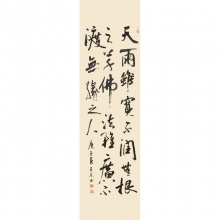 天雨雖寬不潤無根
之草佛法雖廣不
渡無緣之人